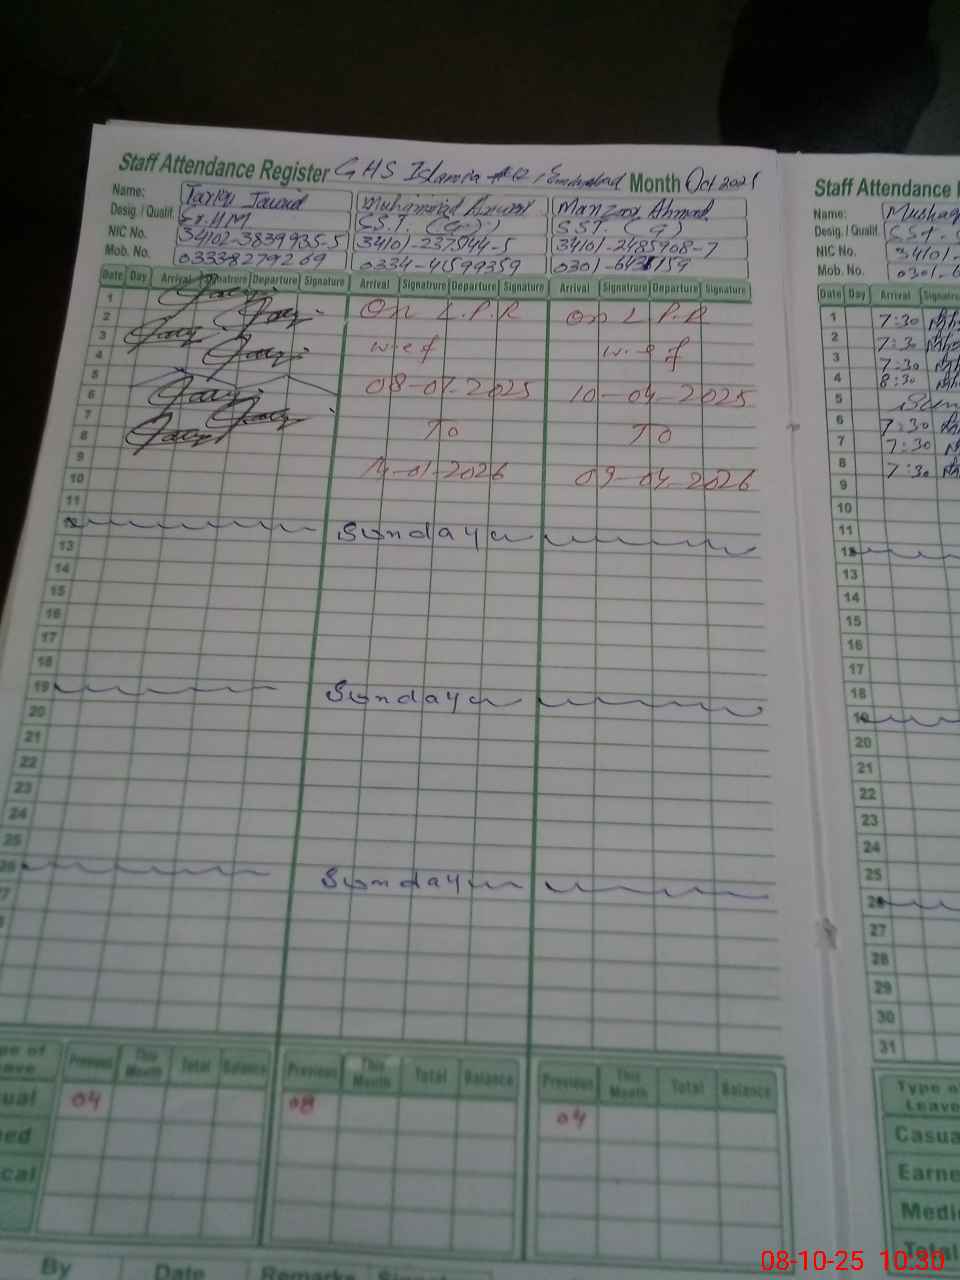 Staff Attendance Register GHS Islamia Month Oct 2025
Name: Tariq Javaid Muhammad Manzoor Ahmad
Desig. / Qualif. Sr. HM S.S.T. S.S.T. (G)
NIC No. 34102-3839935-5 34101-237544-5 34101-2485908-7
Mob. No. 03338279269 0334-4599359
Date Day Arrival Signatrure Departure Signature Arrival Signatrure Departure Signature Arrival Signatrure Departure Signature
1 On L.P.R On L.P.R
2
3 w.e.f w.e.f
4
5 2025 10-04-2025
6
7 To To
8
9 2026 09-04-2026
10
11
Sunday
13
14
15
16
17
18
19 Sunday
20
21
22
23
24
25
26 Sunday
Previous This Month Total Balance Previous This Month Total Balance Previous This Month Total Balance
04 08 04
By Date Remarks
Staff Attendance
Name:
Desig. / Qualif. S.S.T.
NIC No. 34101-
Mob. No. 0301-6
Date Day Arrival
1 7:30
2 7:30
3 7:30
4 8:30
5 Sun
6 7:30
7 7:30
8 7:30
9
10
11
12
13
14
15
16
17
18
19
20
21
22
23
24
25
26
27
28
29
30
31
Type o
Leave
Casua
Earne
Medi
Total
08-10-25 10:30